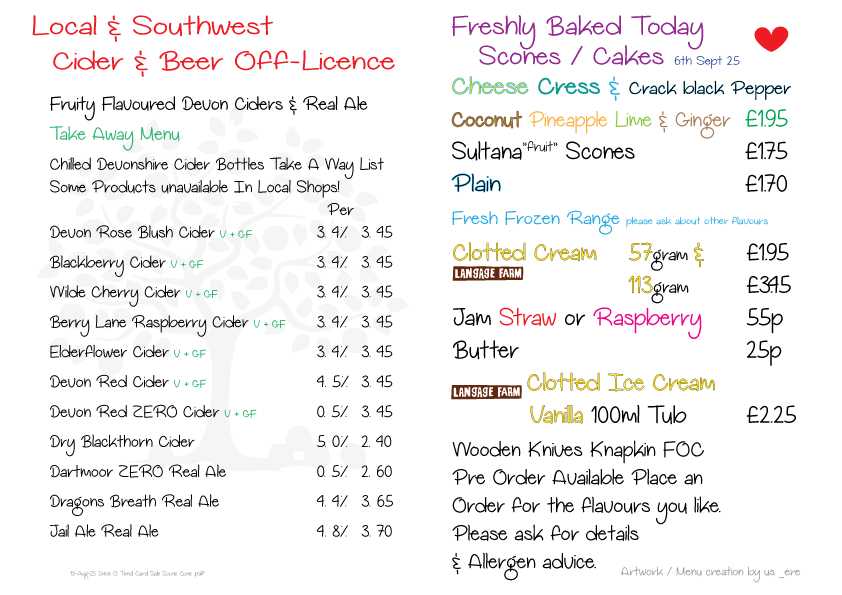 Local & Southwest
Cider & Beer Off-Licence
Fruity Flavoured Devon Ciders & Real Ale
Take Away Menu
Chilled Devonshire Cider Bottles Take A Way List
Some Products unavailable In Local Shops!
Per
Devon Rose Blush Cider V + GF 3. 4% 3. 45
Blackberry Cider V + GF 3. 4% 3. 45
Wilde Cherry Cider V + GF 3. 4% 3. 45
Berry Lane Raspberry Cider V + GF 3. 4% 3. 45
Elderflower Cider V + GF 3. 4% 3. 45
Devon Red Cider V + GF 4. 5% 3. 45
Devon Red ZERO Cider V + GF 0. 5% 3. 45
Dry Blackthorn Cider 5. 0% 2. 40
Dartmoor ZERO Real Ale 0. 5% 2. 60
Dragons Breath Real Ale 4. 4% 3. 65
Jail Ale Real Ale 4. 8% 3. 70
Freshly Baked Today
Scones / Cakes 6th Sept 25
Cheese Cress & Crack black Pepper
Coconut Pineapple Lime & Ginger £1.95
Sultana "fruit" Scones £1.75
Plain £1.70
Fresh Frozen Range please ask about other flavours
Clotted Cream 57gram & £1.95
LANGAGE FARM 113gram £3.45
Jam Straw or Raspberry 55p
Butter 25p
LANGAGE FARM Clotted Ice Cream
Vanilla 100ml Tub £2.25
Wooden Knives Knapkin FOC
Pre Order Available Place an
Order for the flavours you like.
Please ask for details
& Allergen advice.
Artwork / Menu creation by us _ere